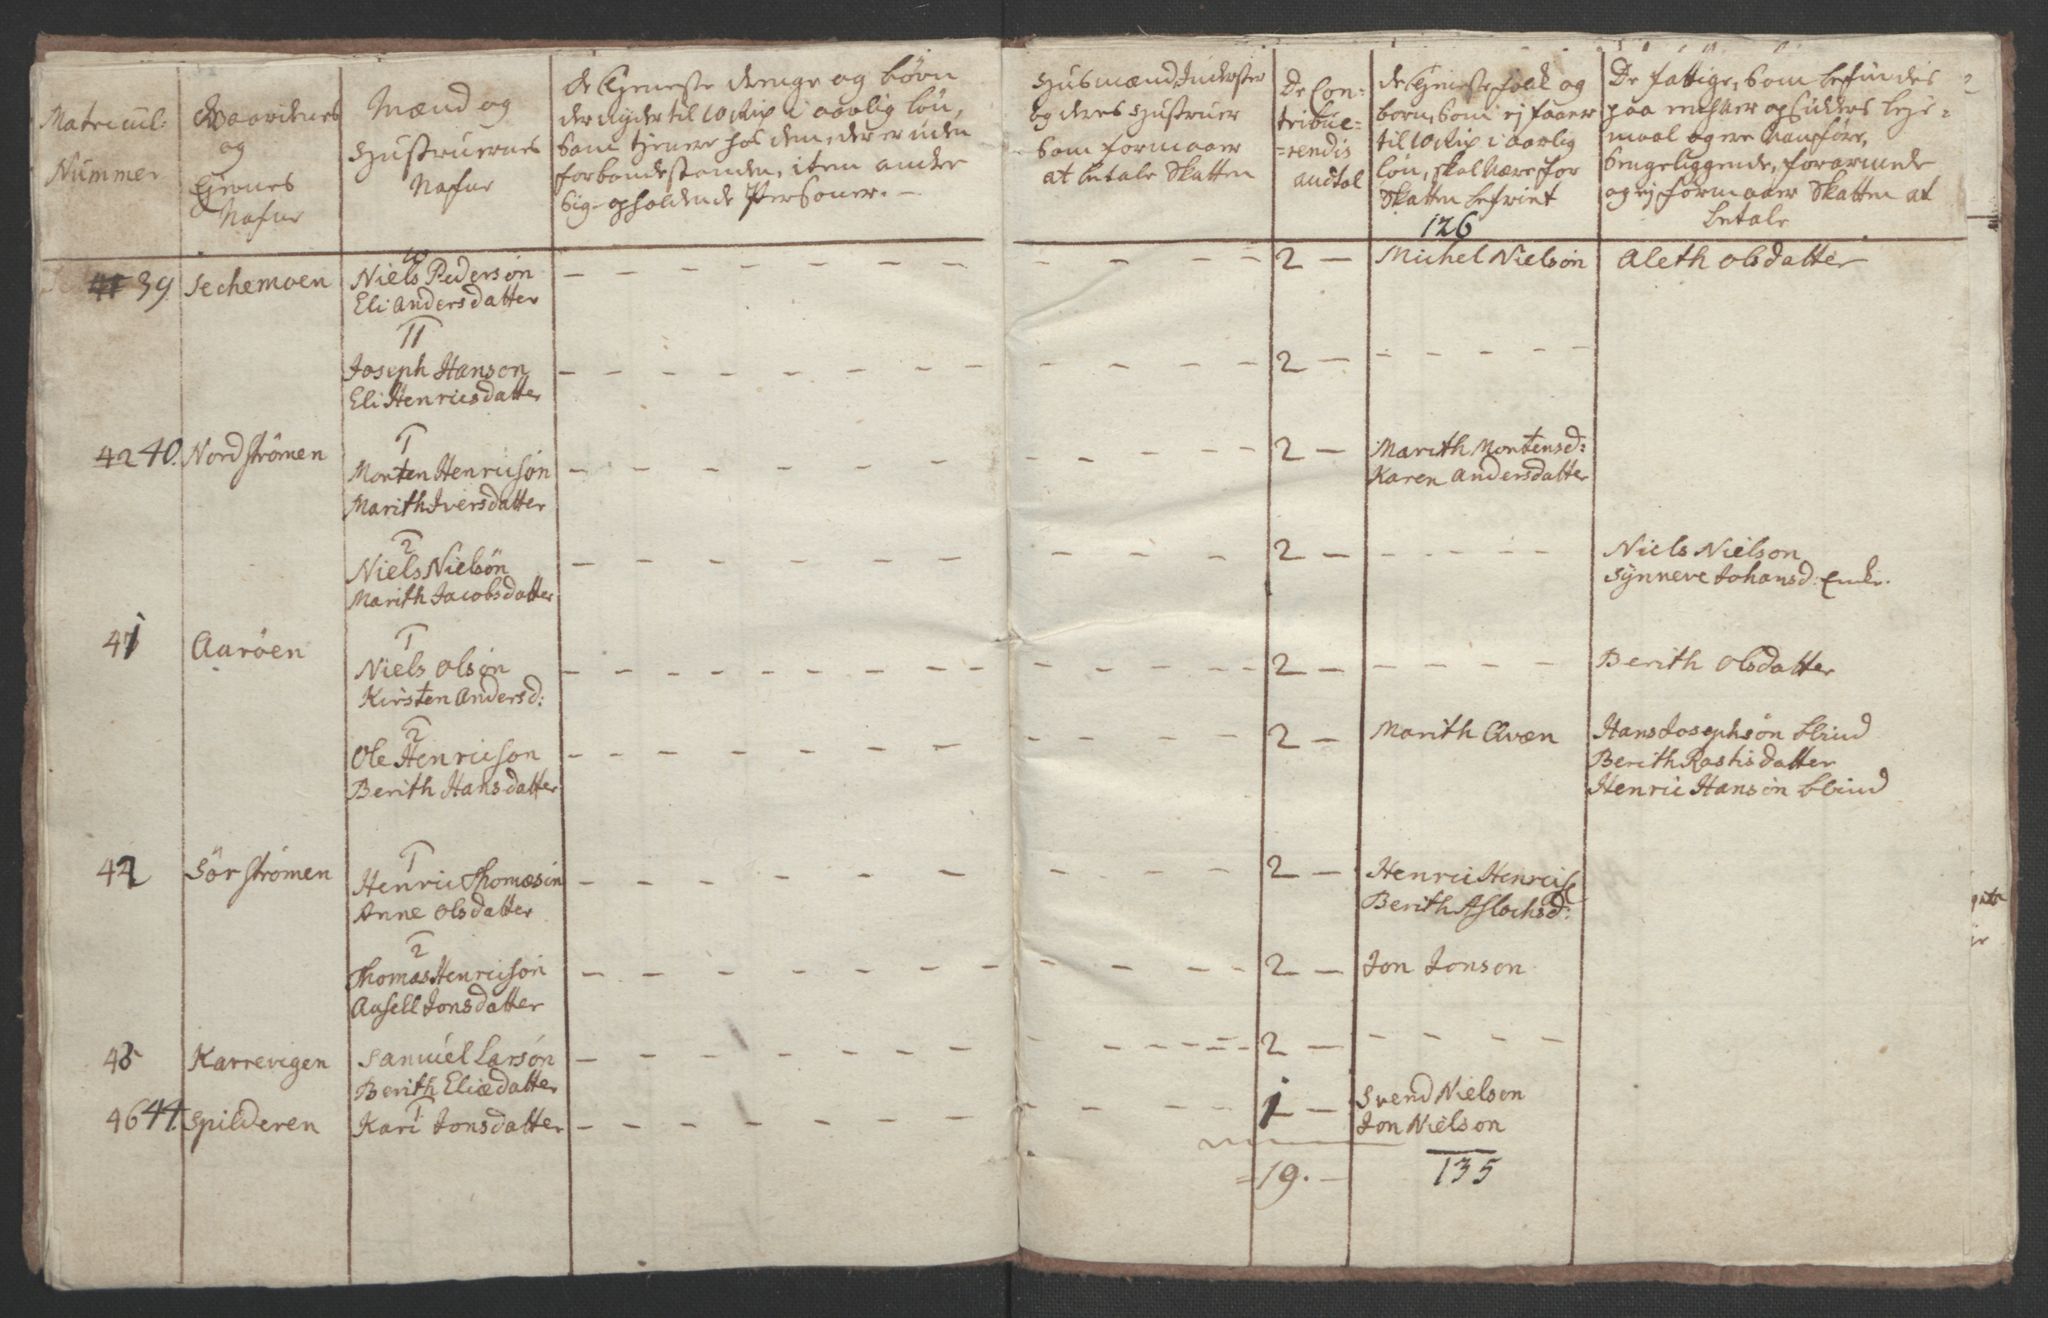 Matricul:
Nummer
Gaardenes
og
Ejernes
Nafne
Mænd og
Hustruernes
Nafne
de Tjeneste drenge og børn
der nyder til 10 Rix i aarlig løn,
som tjener hos dem, eller er uden
forbemeldte standen, item andre
sig opholdende Personer. —
Husmænd, Inderster
og deres Hustruer
som formaaer
at betale Skatten
De Con-
tribue-
=rendis
andtal
de Tjeneste folk og
børn, som ej faaer
til 10 Rix i aarlig
løn, skal være for
Skatten befriet
126
De fattige, som befindes
paa enhver opsidders leje-
maal og ere Vanføre,
sengeliggende, forarmede
og ej formaaer Skatten at
betale
41 39 Sechemoen
10
Niels Pedersøn
Eli Andersdatter
2 — Michel Nielsøn Aleth Olsdatter
11
Joseph Hanson
Eli Henricsdatter
2 —
42 40. Nordstrømen
1
Morten Henricsøn
Marith Iversdatter
2 — Marith Mortensd:
Karen Andersdatter
2
Niels Nielsøn
Marith Jacobsdatter
2 — Niels Nielson
Synneve Johansd: Enke.
41 Aarøen
1
Niels Olsøn
Kirsten Andersd:
2 — Berith Olsdatter
2
Ole Henricson
Berith Hansdatter
2 — Marith Qvæn
Hans Josephsøn blind
Berith Rastisdatter
Henric Hansøn blind
42 Sørstrømen
1
Henric Thomæsøn
Anne Olsdatter
2 — Henric Henrics
Berith Aslachsd:
2
Thomas Henricsøn
Aasell Jonsdatter
2 — Jon Jonson
43 Karrevigen
Samuel Larsøn
Berith Eliædatter
2 —
46 44. Spilderen
1
Kari Jonsdatter
1 — Svend Nielson
Jon Nielson
=19. — 135